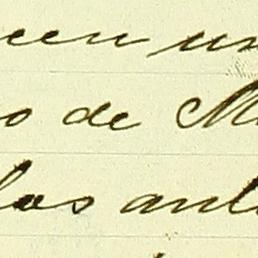 een un
o de M
los ant